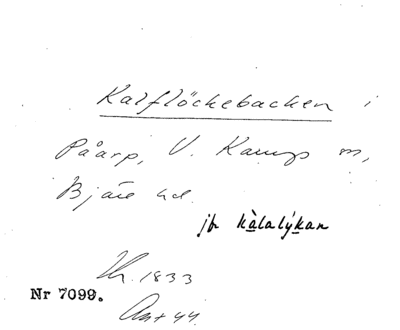 Kalflöckebacken i
Påarp, V. Karup sn,
Bjäre hd.
jfr kàlalýkan
1833
Nr 7099.